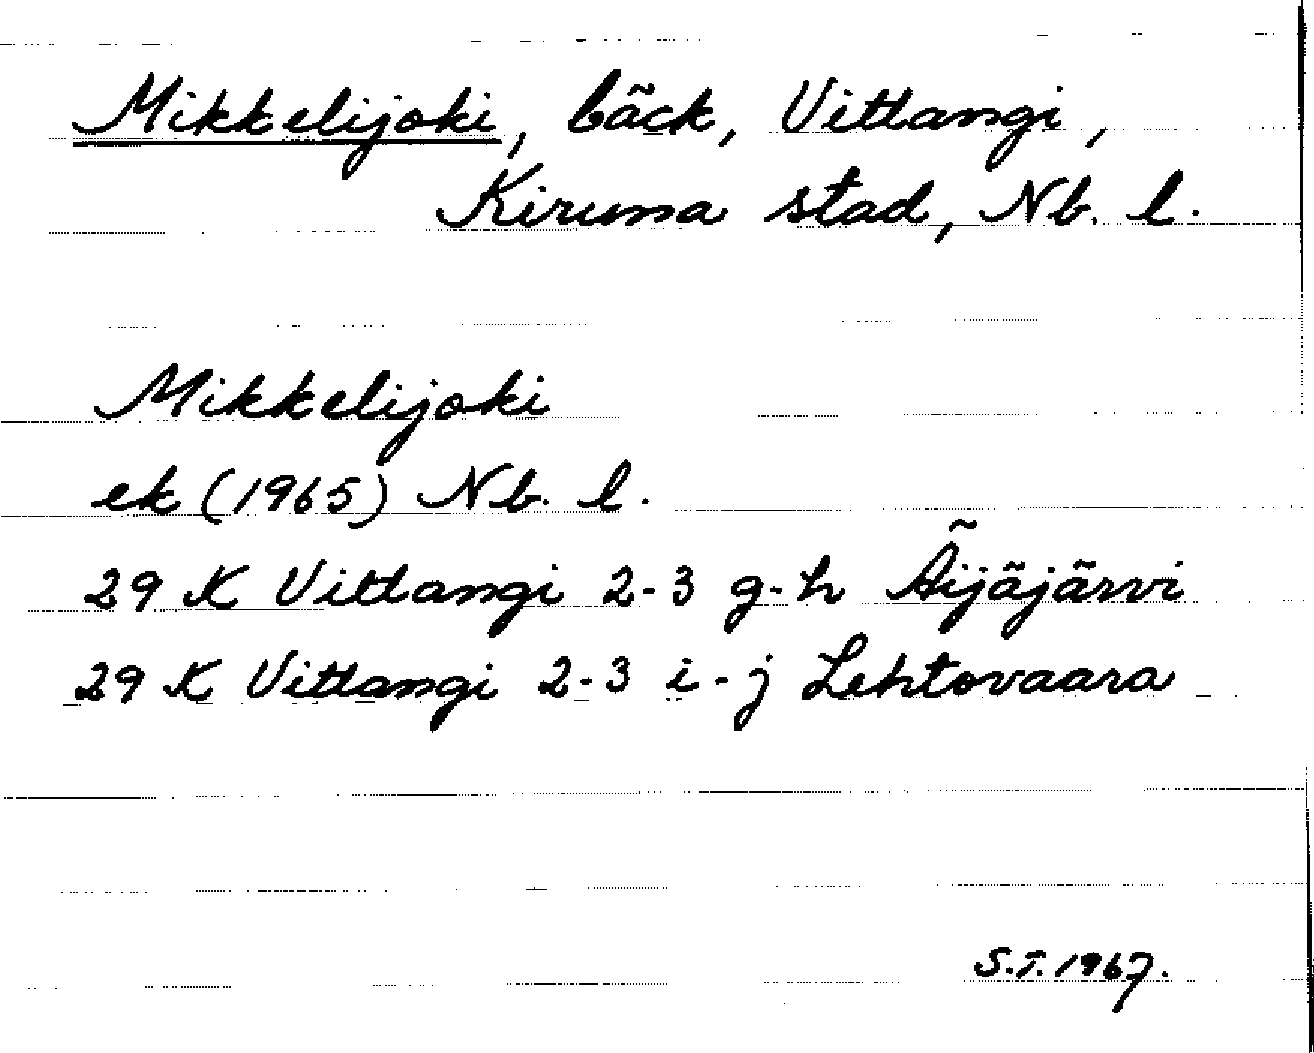 Mikkelijoki, bäck, Vittangi,
Kiruna stad, Nb. l.
Mikkelijoki
ek (1965) Nb. l.
29 K Vittangi 2-3 g-h Äijäjärvi
29 K Vittangi 2-3 i-j Lehtovaara
S.T. 1967.